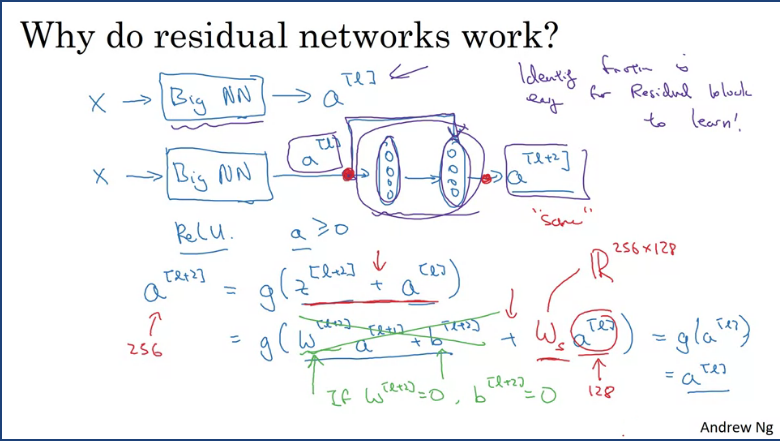 Why do residual networks work?
X → Big NN → a^[l]
Identity function is
easy for Residual block
to learn!
X → Big NN → a^[l] → a^[l+2]
"Same"
ReLU. a ≥ 0
ℝ^256×128
a^[l+2] = g(z^[l+2] + a^[l])
256
= g(W^[l+2] a^[l+1] + b^[l+2] + W_s a^[l]) = g(a^[l])
= a^[l]
If W^[l+2]=0, b^[l+2]=0
128
Andrew Ng